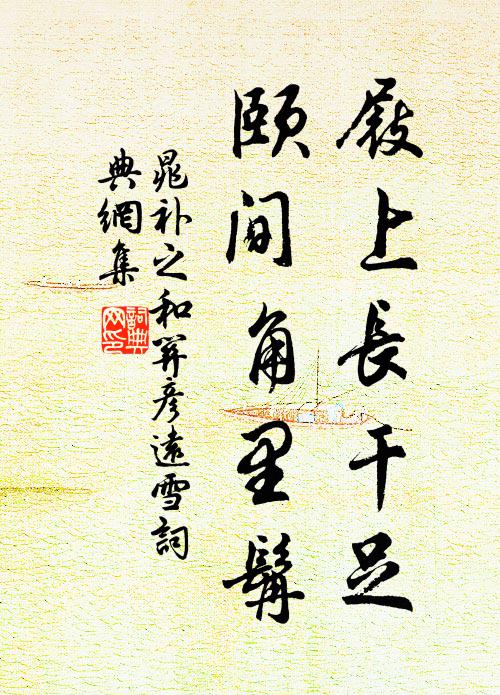 屐上長干足
頤間角里髯
晁补之和關彥遠雪詞
典網集
詞典
网印